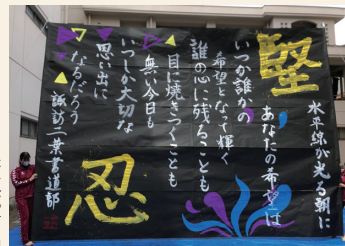 堅忍
水平線が光る朝に
あなたの希望は
いつか誰かの
希望となって輝く
誰の心に残ることも
目に焼きつくことも
無い今日も
いつしか大切な
思い出に
なるだろう
諏訪二葉書道部